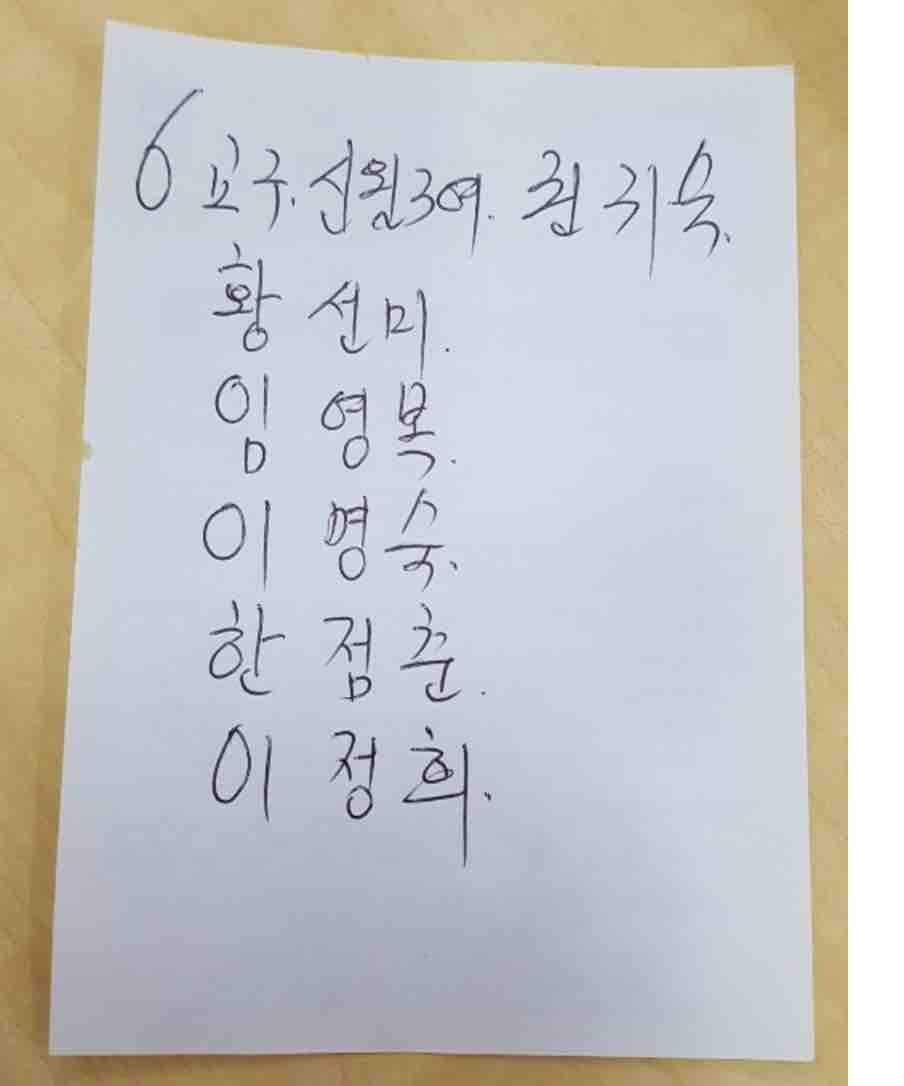 6교구. 신월3여. 최귀옥.
황선미.
임영복.
이명숙.
한점춘.
이정희.